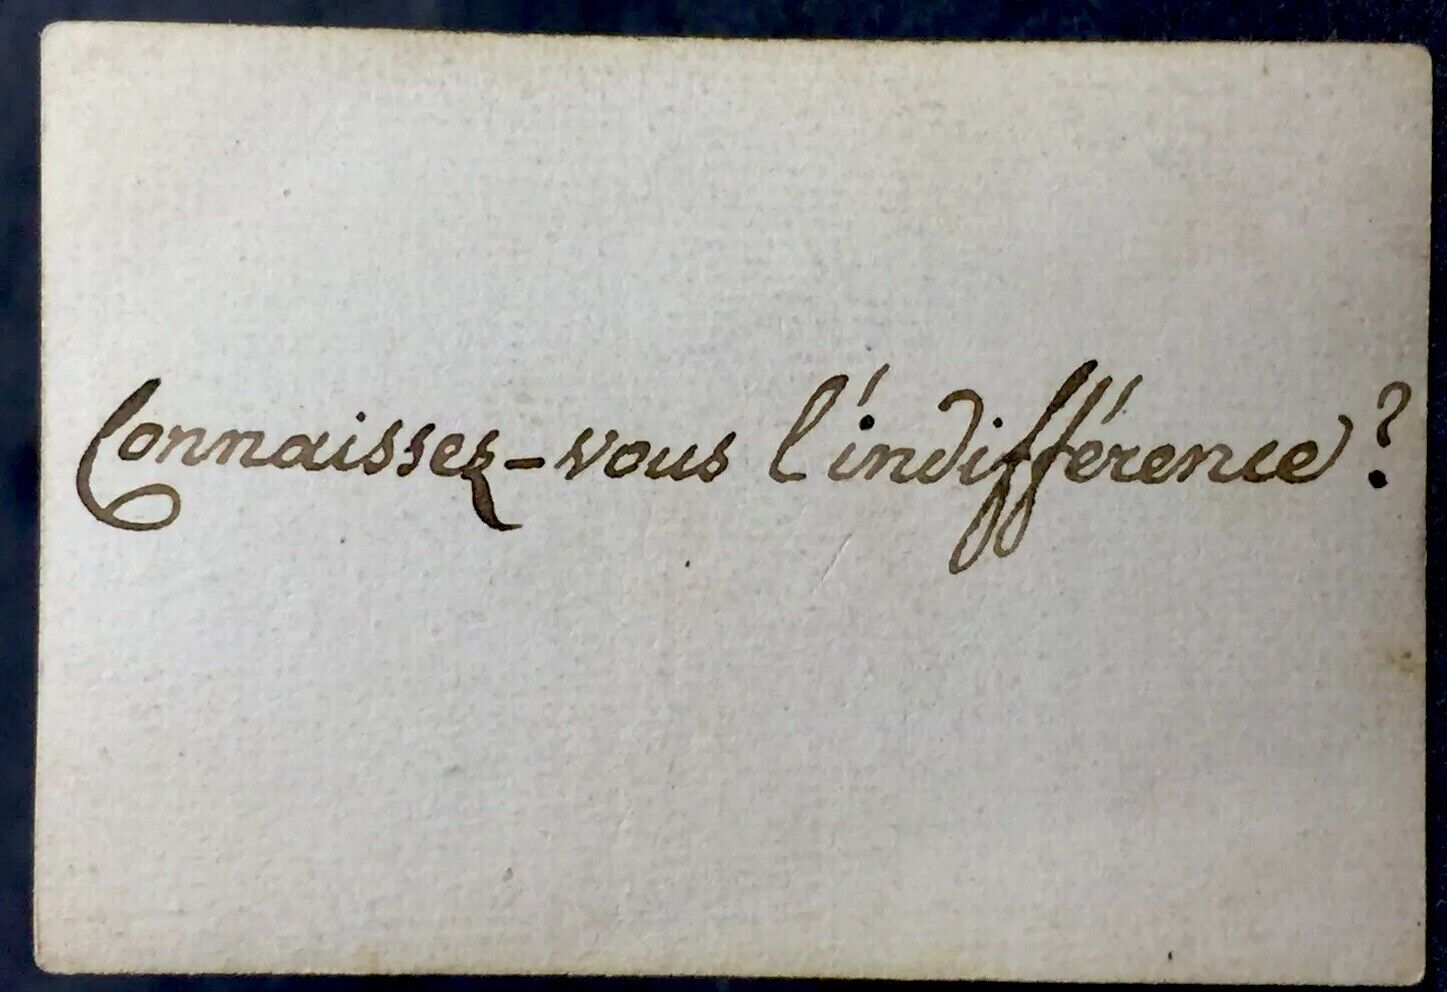 Connaissez-vous l'indifférence?